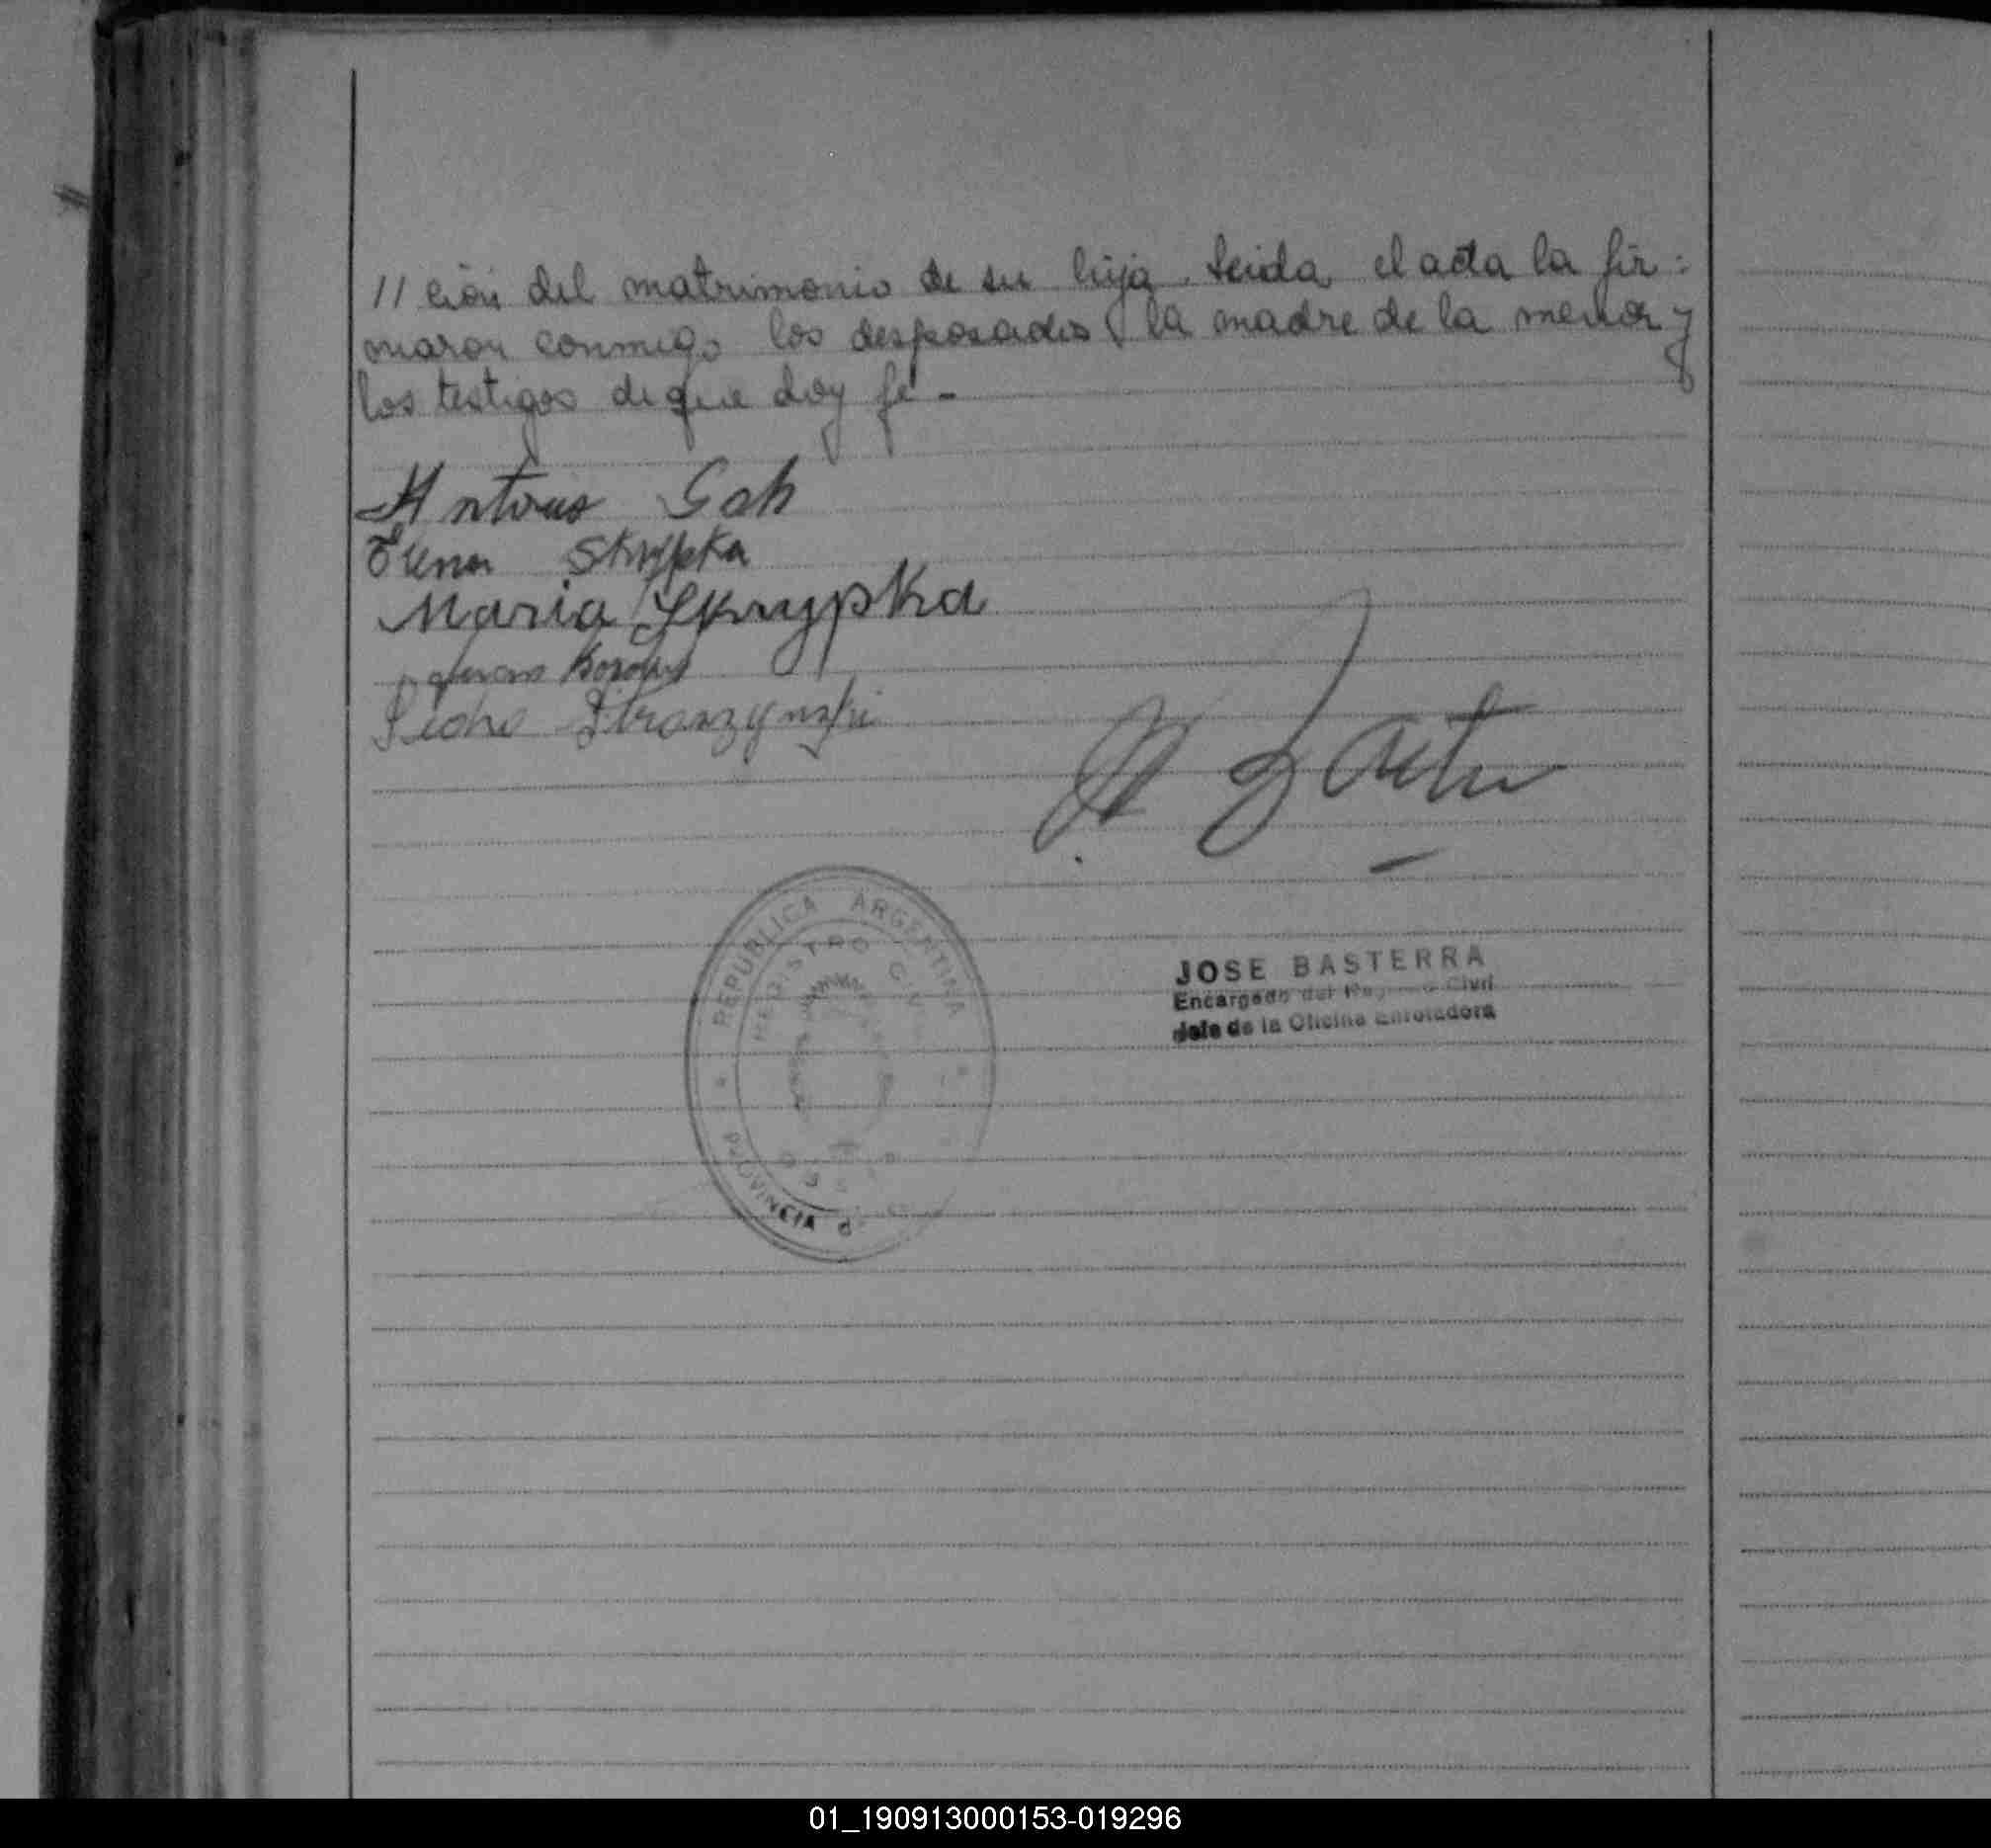 // ción del matrimonio de su hija. Leida el acta la fir=
maron conmigo los desposados, la madre de la menor y
los testigos de que doy fé -
Antonio Gah
Elena Skrypka
Maria Skrypka
Pedro
REPUBLICA ARGENTINA
REGISTRO CIVIL
PROVINCIA
JOSE BASTERRA
Encargado del Registro Civil
Jefe de la Oficina Enroladora
01_190913000153-019296